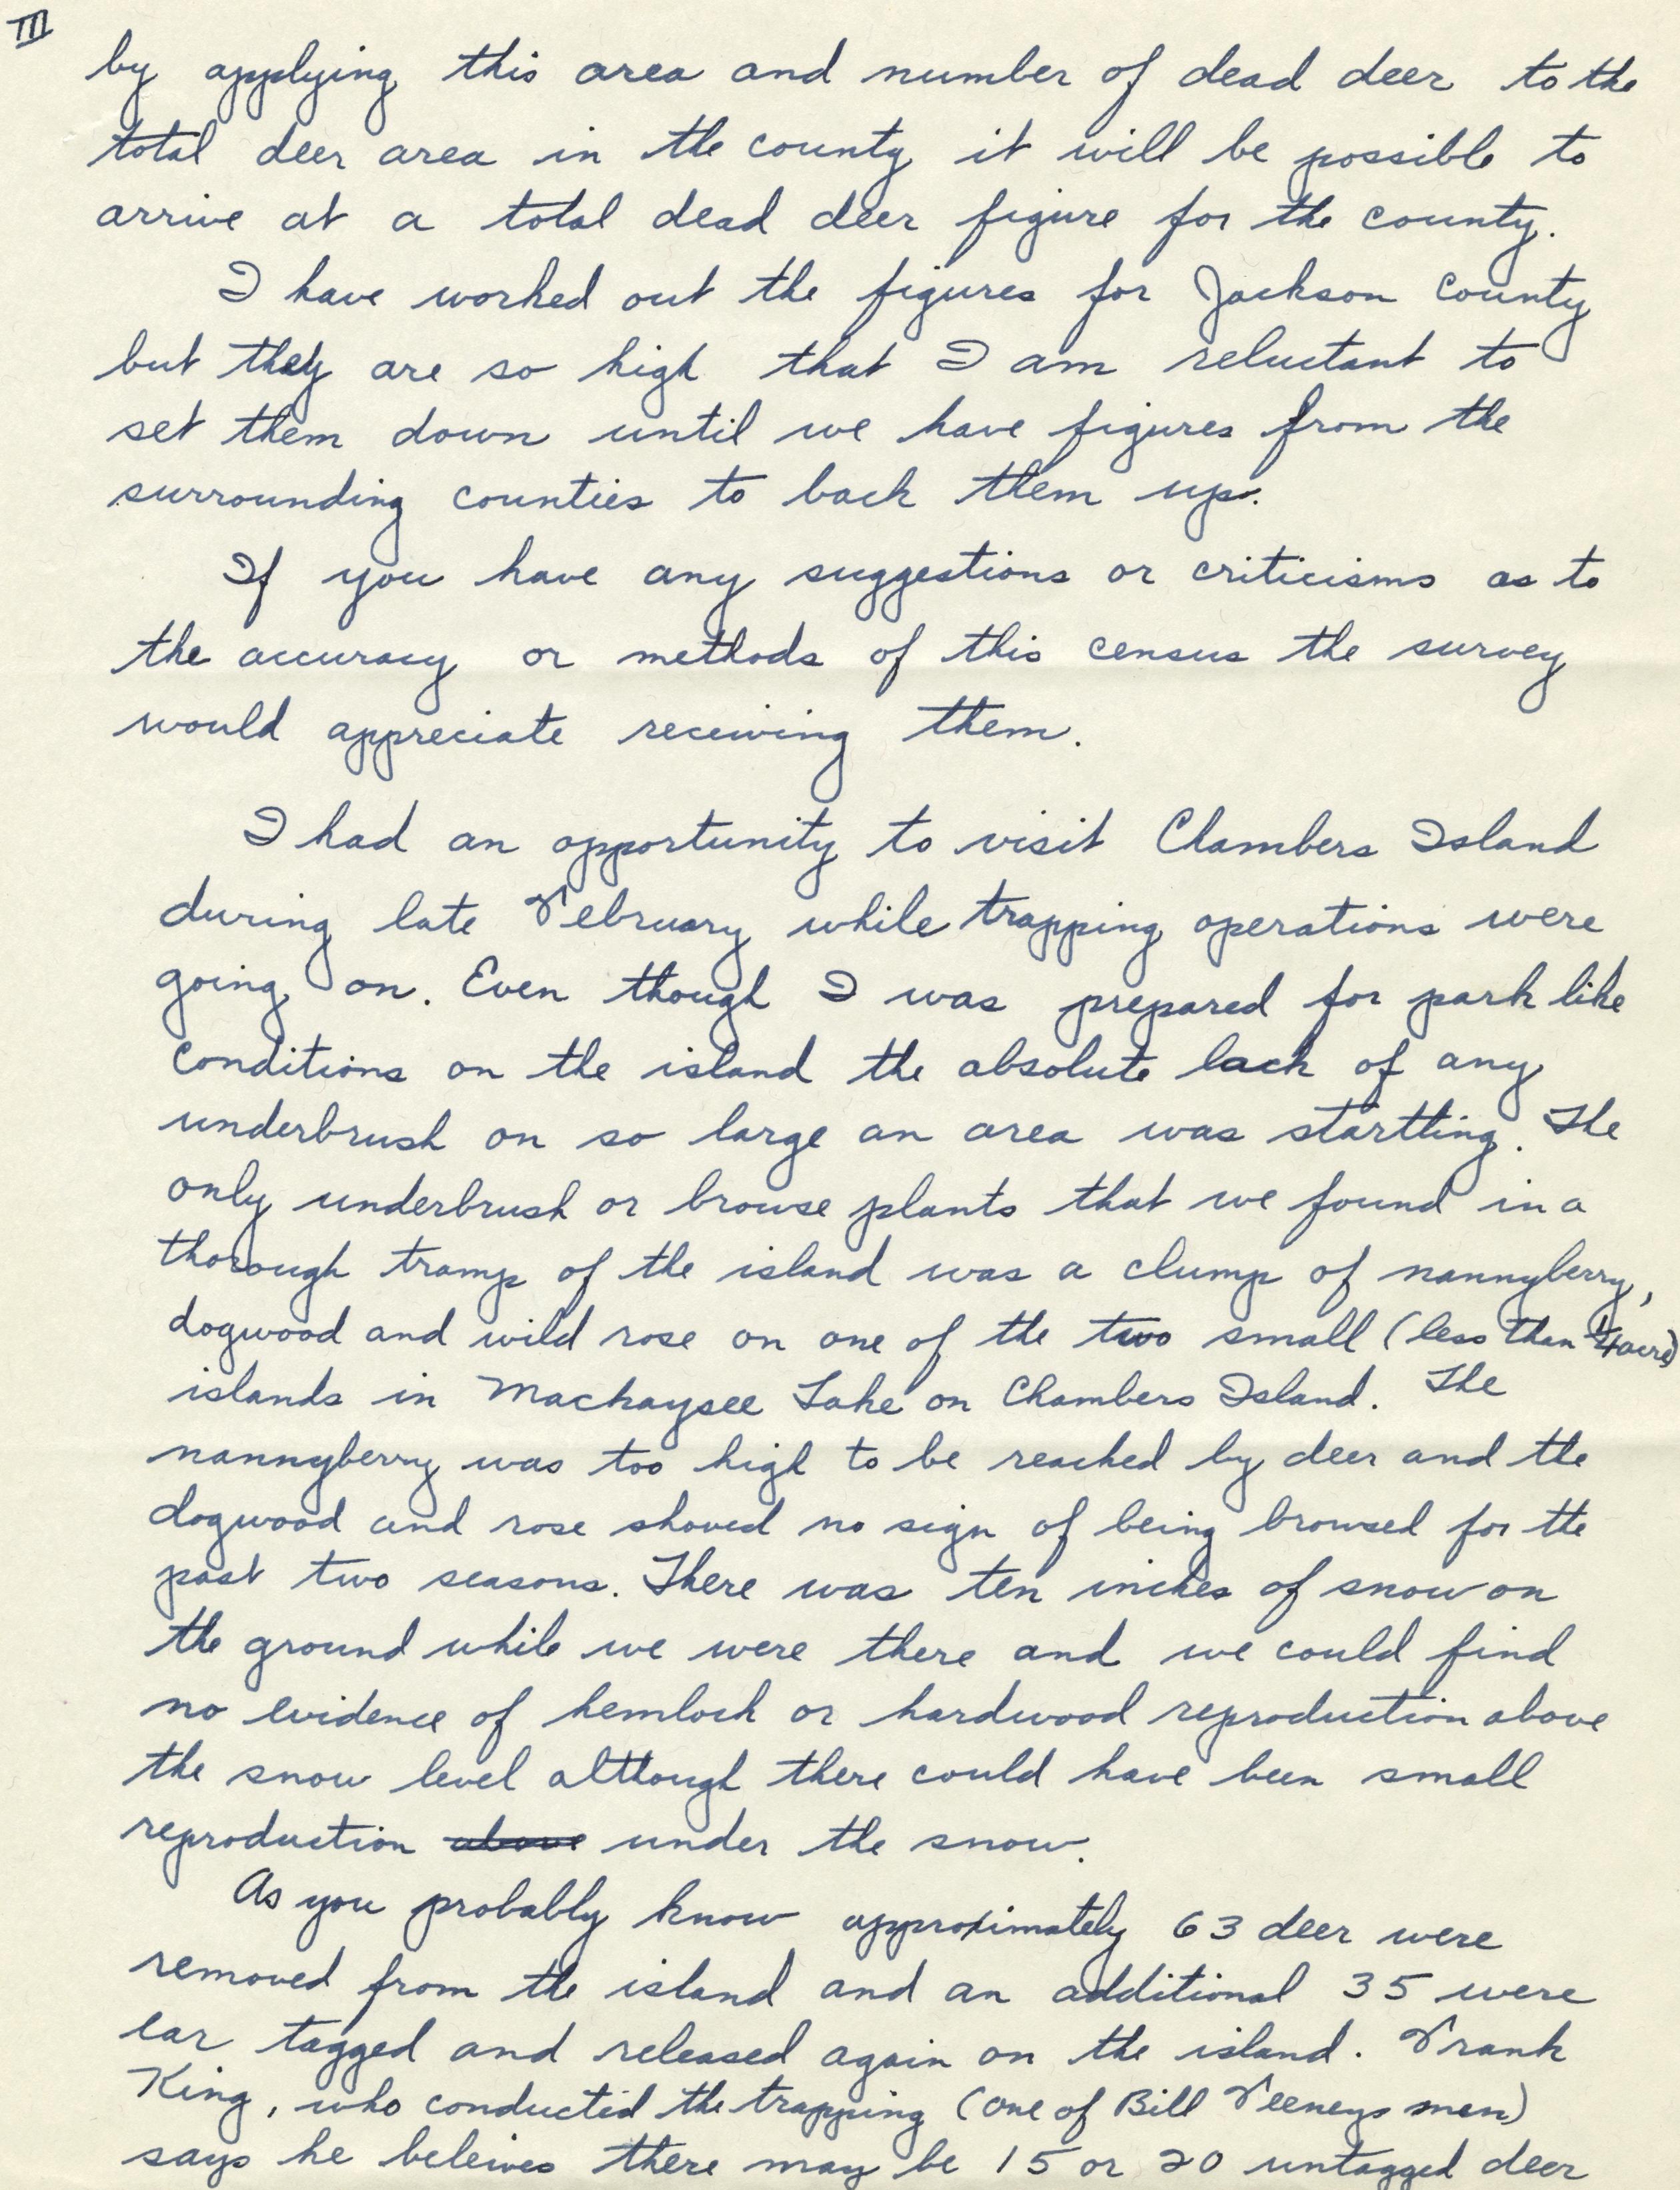 III
by applying this area and number of dead deer to the
total deer area in the county it will be possible to
arrive at a total dead deer figure for the county.
I have worked out the figures for Jackson County
but they are so high that I am reluctant to
set them down until we have figures from the
surrounding counties to back them up.
If you have any suggestions or criticisms as to
the accuracy or methods of this census the survey
would appreciate receiving them.
I had an opportunity to visit Chambers Island
during late February while trapping operations were
going on. Even though I was prepared for park like
conditions on the island the absolute lack of any
underbrush on so large an area was startling. The
only underbrush or browse plants that we found in a
thorough tramp of the island was a clump of nannyberry,
dogwood and wild rose on one of the two small (less than 1/4 acre)
islands in Mackaysee Lake on Chambers Island. The
nannyberry was too high to be reached by deer and the
dogwood and rose showed no sign of being browsed for the
past two seasons. There was ten inches of snow on
the ground while we were there and we could find
no evidence of hemlock or hardwood reproduction above
the snow level although there could have been small
reproduction above under the snow.
As you probably know approximately 63 deer were
removed from the island and an additional 35 were
ear tagged and released again on the island. Frank
King, who conducted the trapping (one of Bill Feeneys men)
says he beleives there may be 15 or 20 untagged deer